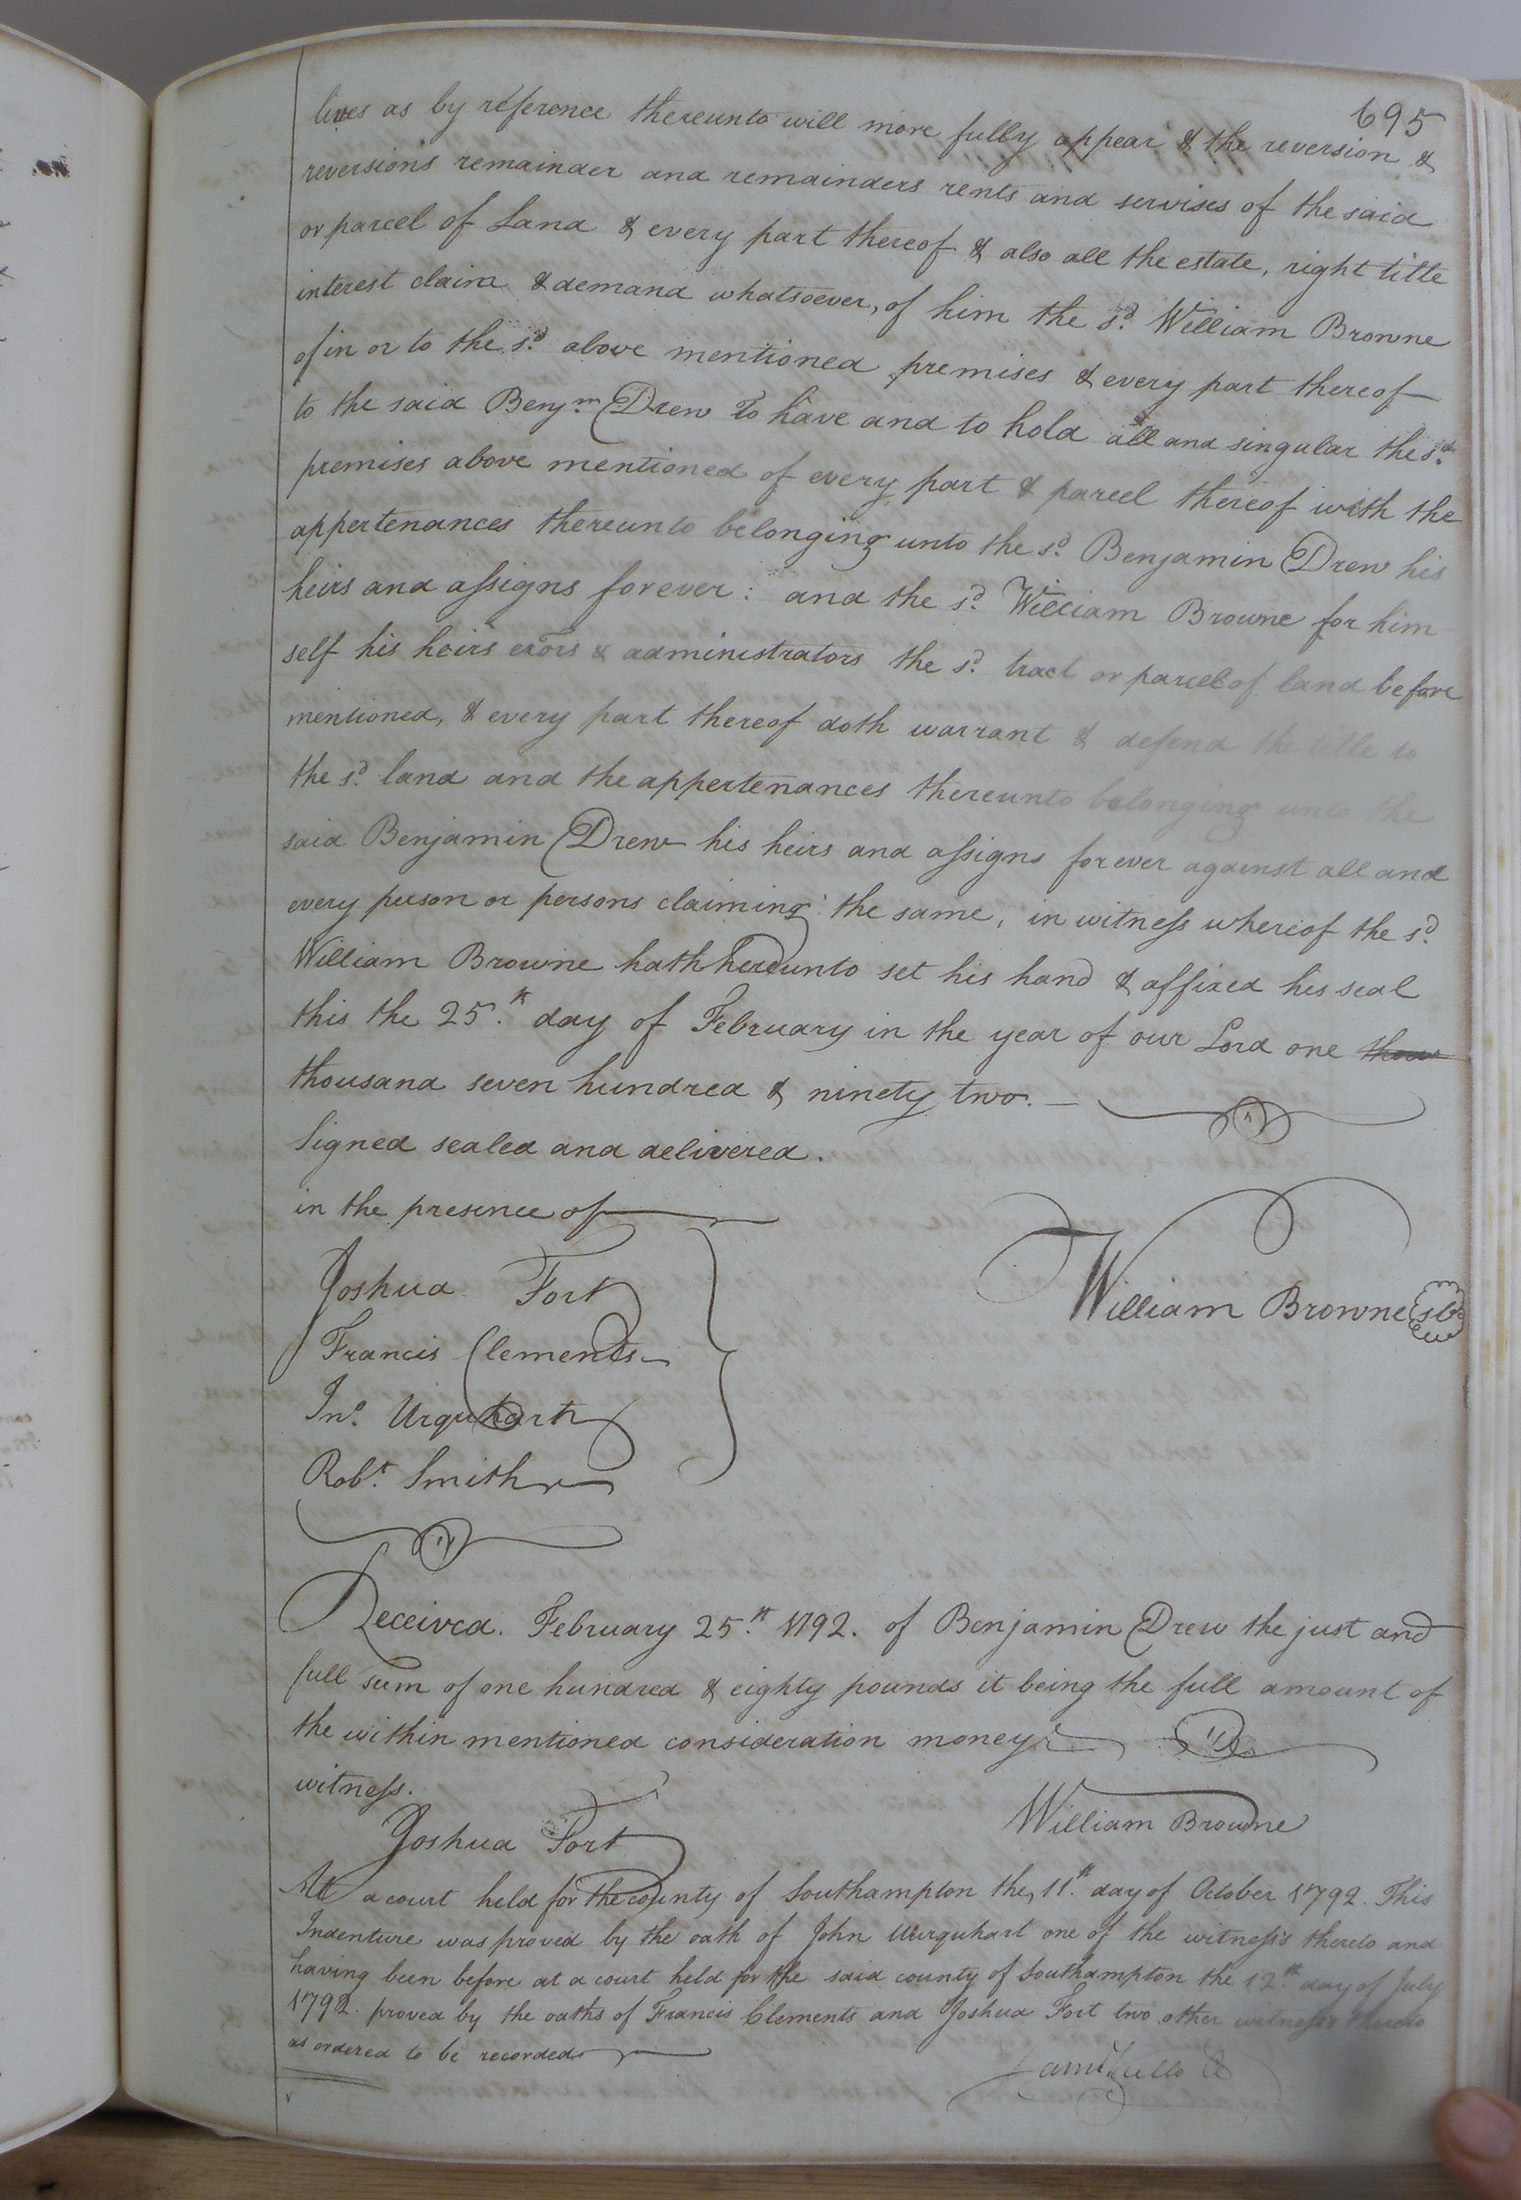 695
lines as by reference thereunto will more fully appear & the reversion &
reversions remainder and remainders rents and servises of the said
or parcel of Land & every part thereof & also all the estate, right title
interest claim & demand whatsoever, of him the sd. William Browne
of in or to the sd. above mentioned premises & every part thereof
to the said Benjm. Drew To have and to hold all and singular the sd.
premises above mentioned of every part & parcel thereof with the
appertenances thereunto belonging unto the sd. Benjamin Drew his
heirs and assigns forever: and the sd. William Browne for him
self his heirs exors & administrators the sd. tract or parcel of land before
mentioned, & every part thereof doth warrant & defend the title to
the sd. land and the appertenances thereunto belonging unto the
said Benjamin Drew his heirs and assigns forever against all and
every person or persons claiming the same, in witness whereof the sd.
William Browne hath hereunto set his hand & affixed his seal
this the 25th. day of February in the year of our Lord one thou
thousand seven hundred & ninety two. —
Signed sealed and delivered.
in the presence of
Joshua Fort
William Browne
Francis Clements
Jno. Urquhart
Robt. Smith
Received. February 25th. 1792. of Benjamin Drew the just and
full sum of one hundred & eighty pounds it being the full amount of
the within mentioned consideration money
witness.
William Browne
Joshua Fort
At a court held for the county of Southampton the 11th. day of October 1792. This
Indenture was proved by the oath of John Wurquhart one of the witness's thereto and
having been before at a court held for the said county of Southampton the 12th. day of July
1792. proved by the oaths of Francis Clements and Joshua Fort two other witness's thereto
as ordered to be recorded